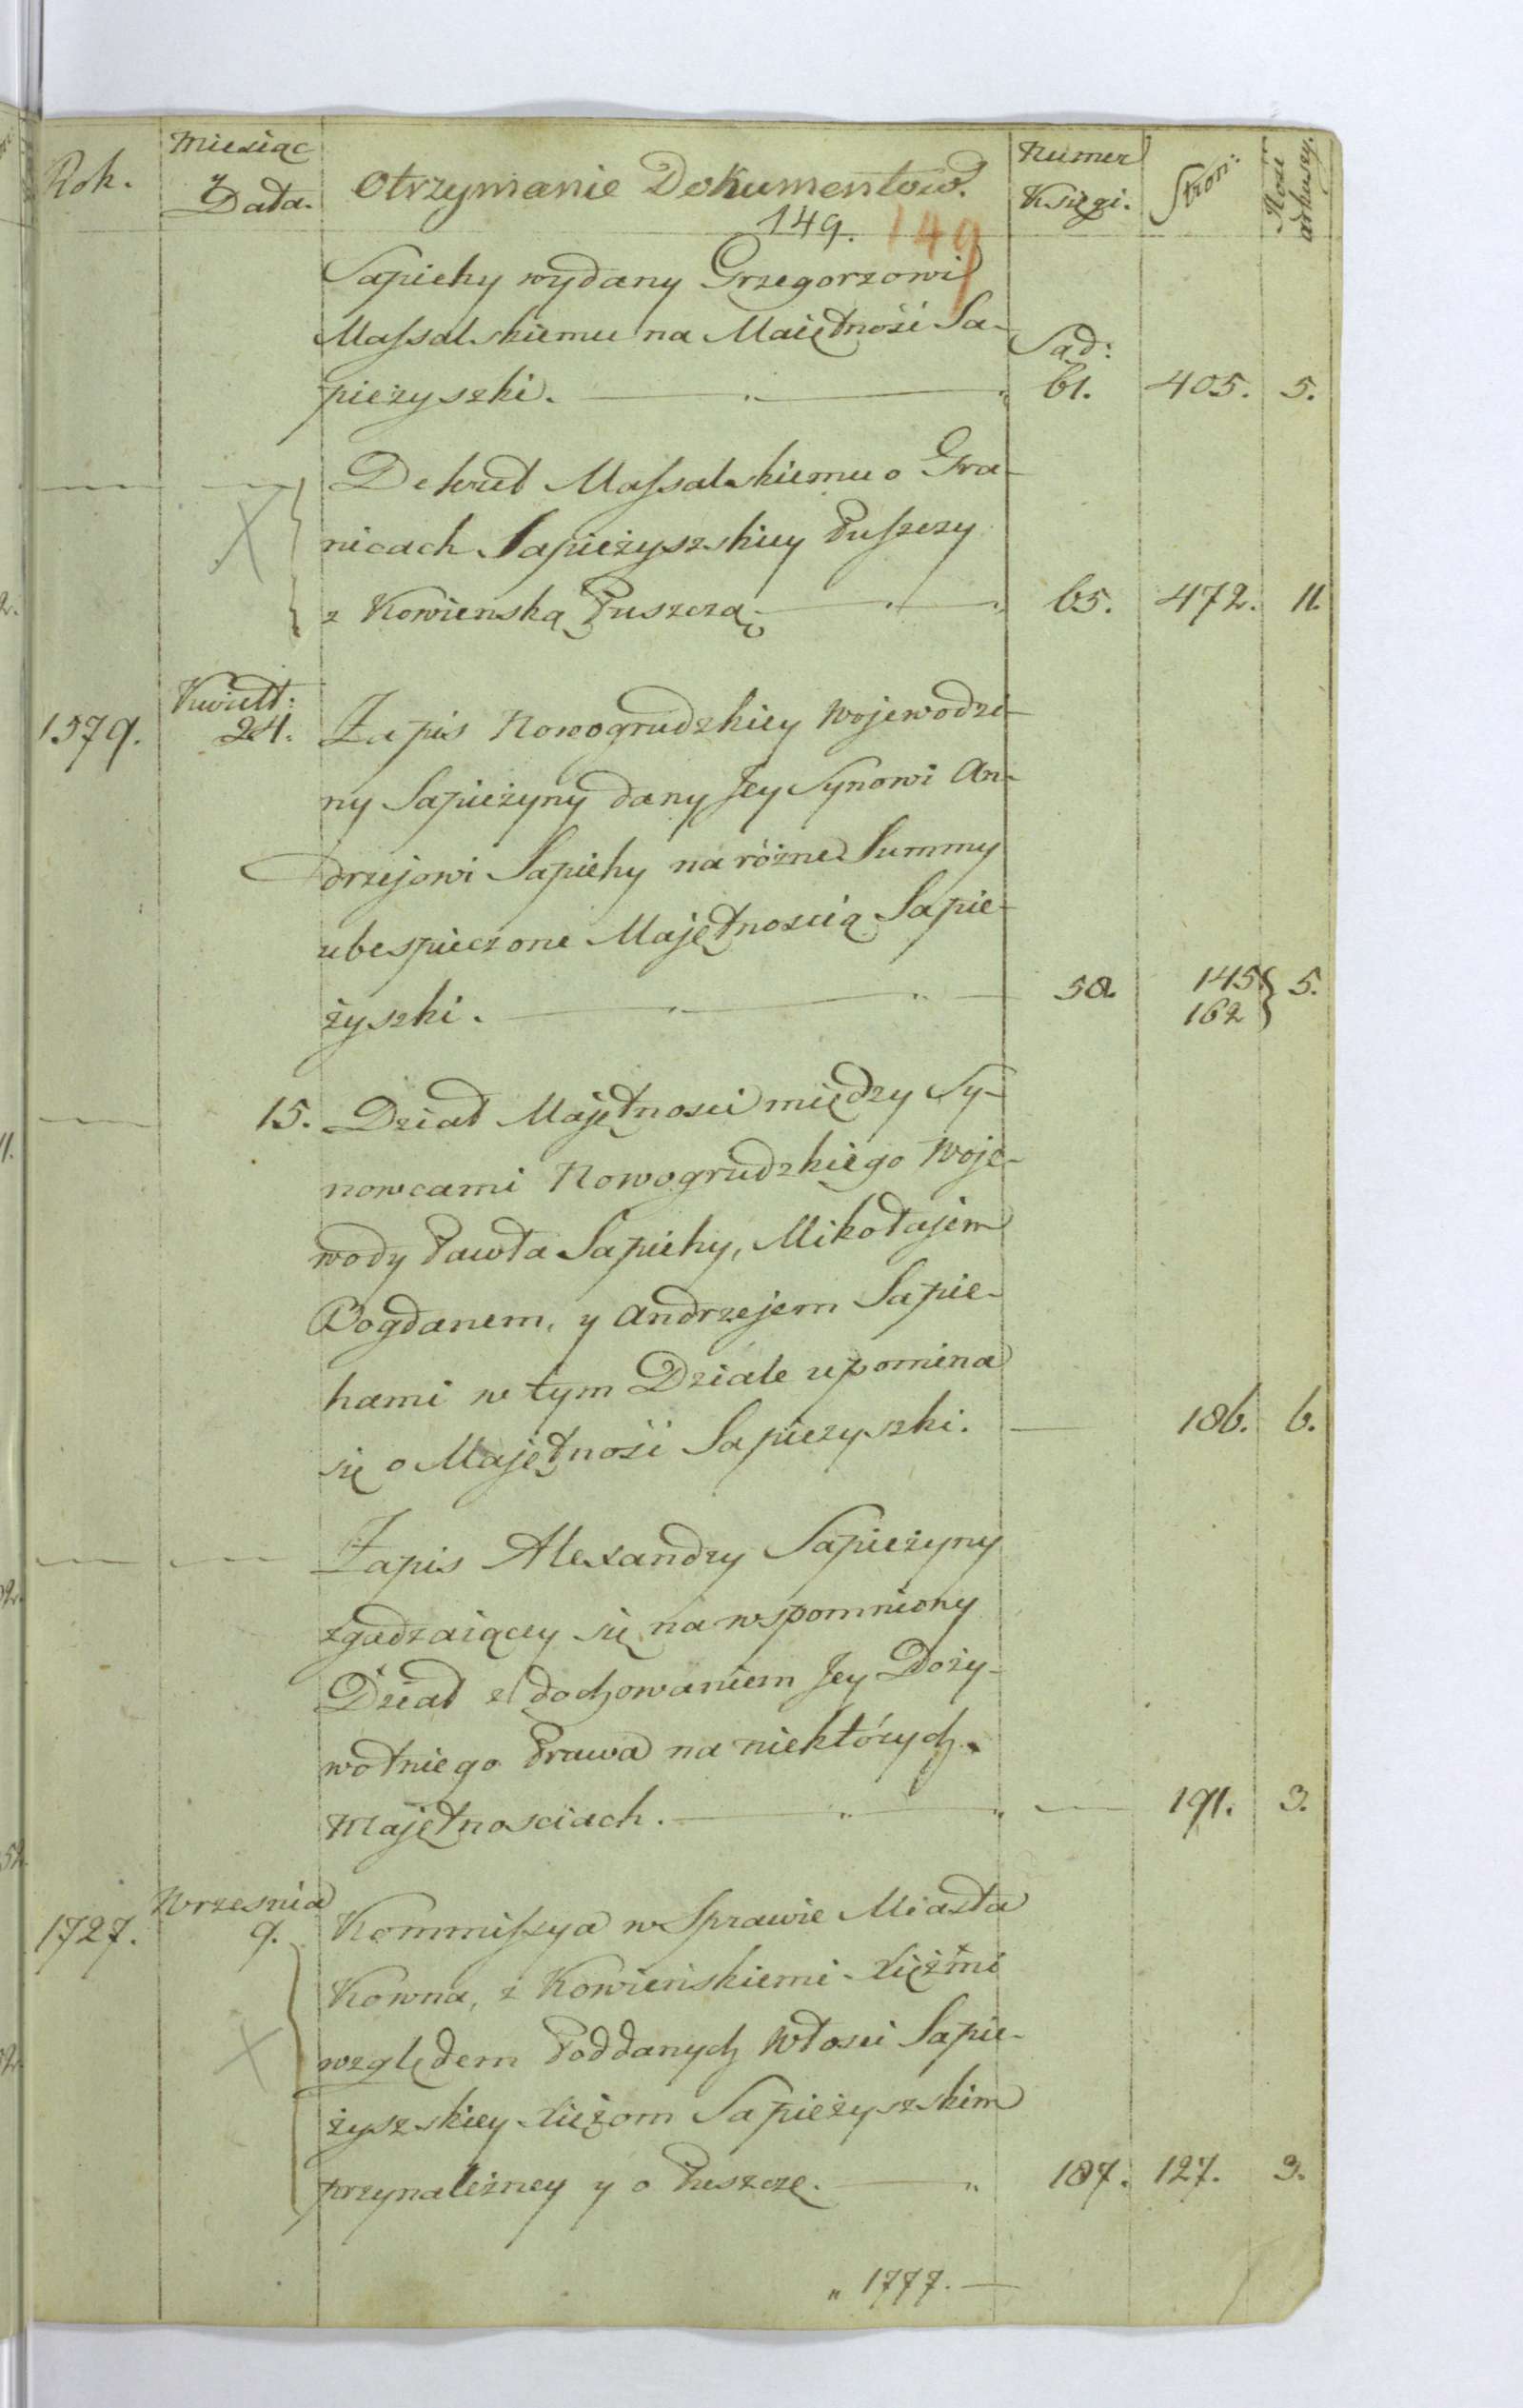 Rok. Miesiąc y Data. Otrzymanie Dokumentow. Numer Księgi. Stron: Ilość arkuszy.
149. 149
Sapiehy wydany Grzegorzowi
Massalskiemu na Maiętność Sa-
pieżyszki. Sąd: 61. 405. 5.
Dekret Massalskiemu o Gra-
nicach Sapieżyszskiey Puszczy
z Kowienską Puszczą. 65. 472. 11.
1579. Kwiett: 24. Zapis Nowogrudzkiey Wojewodzi-
ny Sapieżyny dany Jey Synowi An-
drzejowi Sapiehy na różne Summy
ubespieczone Majętnoscią Sapie-
żyszki. 58. 145. 162 } 5.
15. Dział Majętnosci między Sy-
nowcami Nowogrudzkiego Woje-
wody Pawła Sapiehy, Mikołajem
Bogdanem, y Andrzejem Sapie-
hami w tym Dziale upomina
się o Majętność Sapieżyszki. 186. 6.
Zapis Alexandry Sapieżyny
zgadzaiącey się na wspomniony
Dział z dochowaniem Jey Doży-
wotniego Prawa na niektórych
Majętnosciach. 191. 3.
1727. Wrzesnia 9. Kommissya w Sprawie Miasta
Kowna, z Kowieńskiemi Xiężmi
względem Poddanych Włosci Sapie-
żyszskiey Xiężom Sapieżyszskim
przynależney y o Puszczę. 187. 127. 3.
„ 1777.